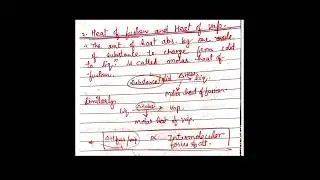 2. Heat of fusion and Heat of vap.
The amt of heat abs. by one mole
of substance to change from solid
to liq. is called molar heat of
fusion.
Substance liq.
molar heat of fusion.
Similarly,
liq vap.
molar heat of vap.
ΔH fus/vap ∝ Intermolecular
forces of att.